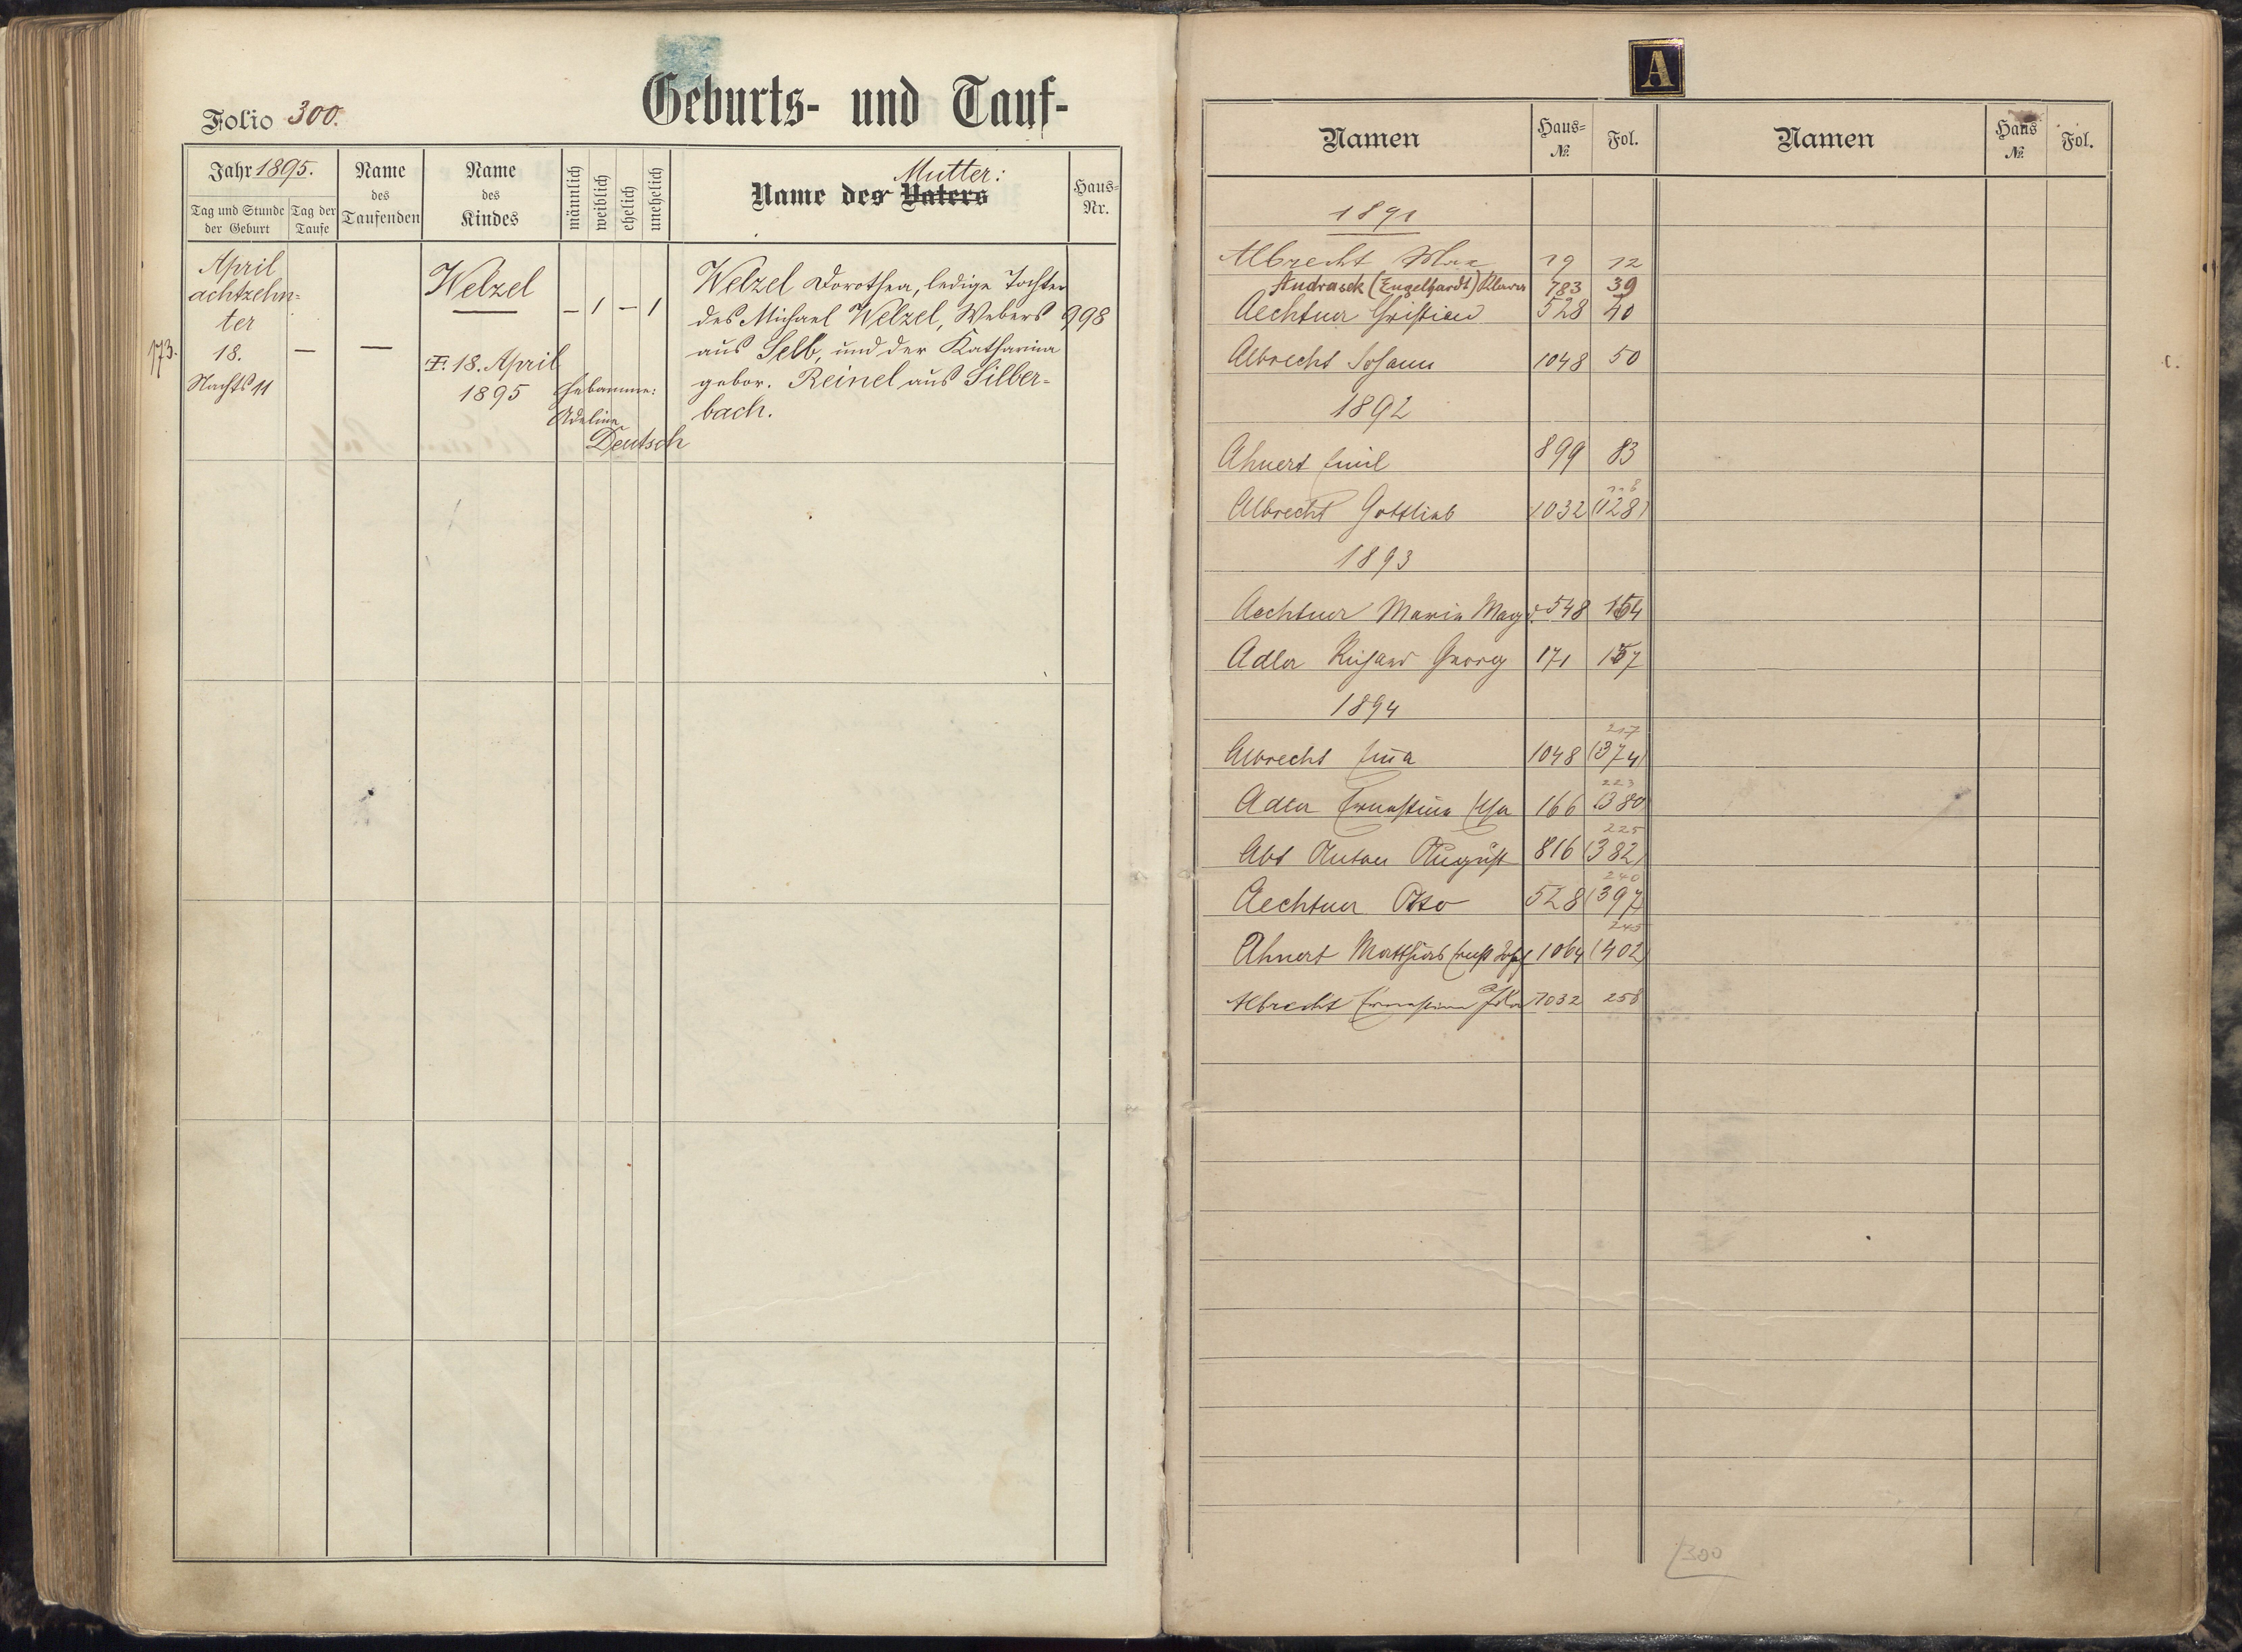 Folio 300.
Geburts- und Tauf-
Jahr 1895.
Tag und Stunde der Geburt
Tag der Taufe
Name des Taufenden
Name des Kindes
männlich
weiblich
ehelich
unehelich
Mutter:
Name des Vaters
Haus-Nr.
173.
April
achtzehn-
ter
18.
Nachts 11
—
—
Welzel
18. April
1895
Hebamme:
Adeline
Deutsch
— 1 — 1
Welzel Dorothea, ledige Tochter
des Michael Welzel, Webers
aus Selb, und der Katharina
gebor. Reinel aus Silber-
bach.
998
A
Namen Haus-№ Fol. Namen Haus № Fol.
1891
Albrecht Max 19 12
Andrasek (Engelhardt) 783 39
Aechtner Christian 528 40
Albrecht Johann 1048 50
1892
Ahnert Emil 899 83
Albrecht Gottlieb 1032 (128)
1893
Aechtner Maria Magd. 548 154
Adler Richard Georg 171 157
1894
217
Albrecht Emma 1048 (374)
223
Adler Ernestine Elsa 166 (380)
225
Abt Anton August 816 (382)
240
Aechtner Otto 528 (397)
245
Ahnert Matthias Ernst 1064 (402)
Albrecht Ernestine Ida 1032 258
300